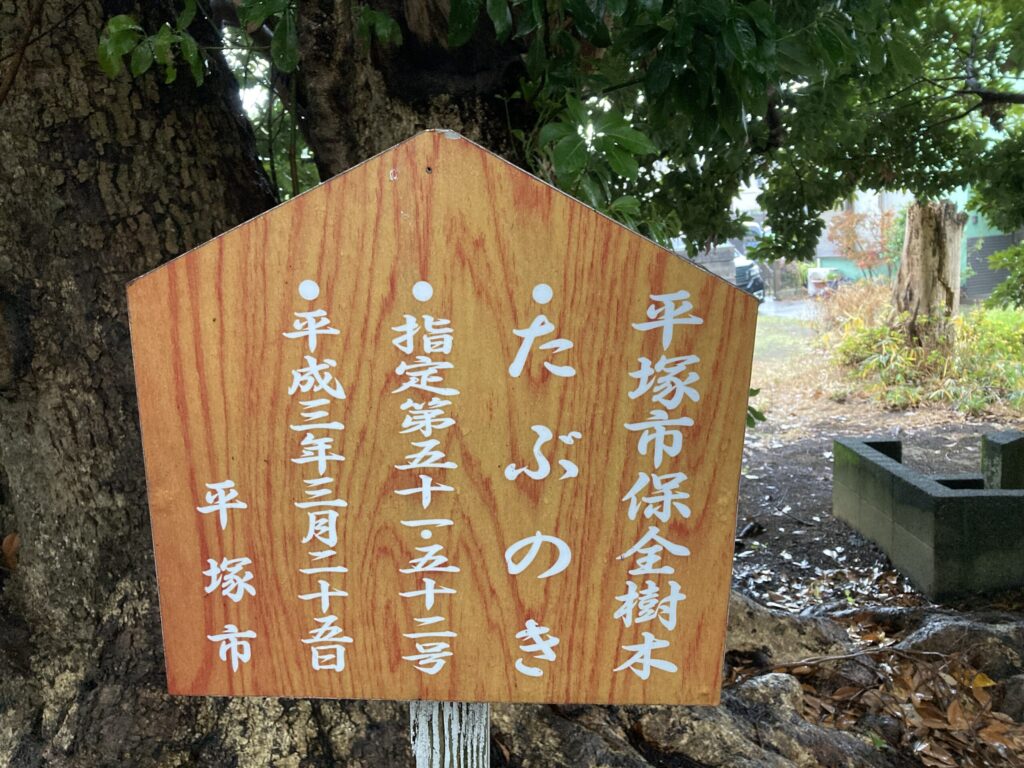 平塚市保全樹木
・たぶのき
・指定第五十一・五十二号
・平成三年三月二十五日
平塚市